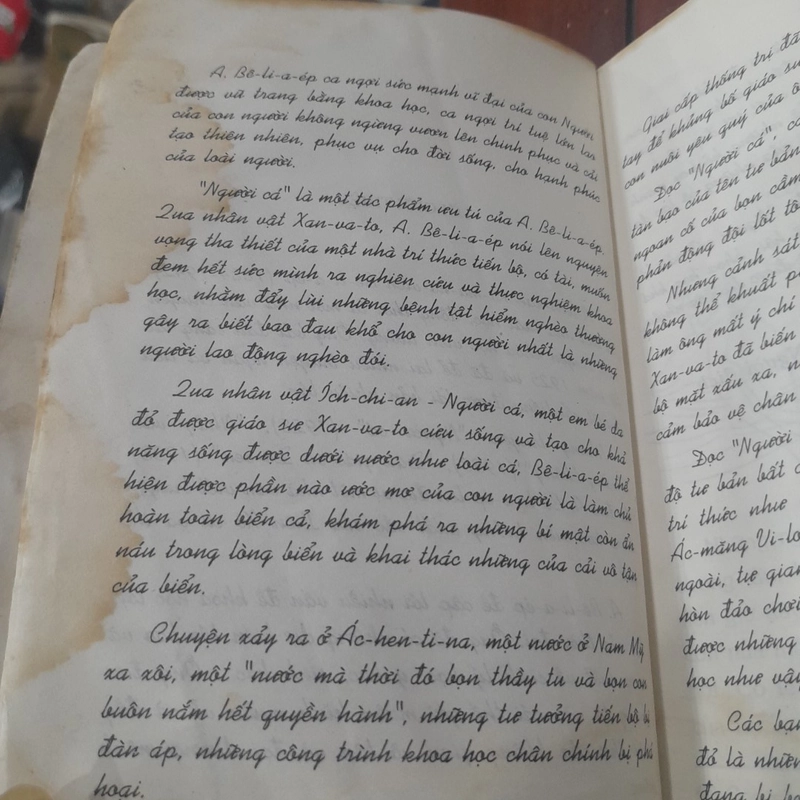 A. Bê-li-a-ép ca ngợi sức mạnh vĩ đại của con Người
được vũ trang bằng khoa học, ca ngợi trí tuệ lớn lao
của con người không ngừng vươn lên chinh phục và cải
tạo thiên nhiên, phục vụ cho đời sống, cho hạnh phúc
của loài người.
"Người cá" là một tác phẩm ưu tú của A. Bê-li-a-ép.
Qua nhân vật Xan-va-to, A. Bê-li-a-ép nói lên nguyện
vọng tha thiết của một nhà trí thức tiến bộ, có tài, muốn
đem hết sức mình ra nghiên cứu và thực nghiệm khoa
học, nhằm đẩy lùi những bệnh tật hiểm nghèo thường
gây ra biết bao đau khổ cho con người nhất là những
người lao động nghèo đói.
Qua nhân vật Ích-chi-an - Người cá, một em bé da
đỏ được giáo sư Xan-va-to cứu sống và tạo cho khả
năng sống được dưới nước như loài cá, Bê-li-a-ép thể
hiện được phần nào ước mơ của con người là làm chủ
hoàn toàn biển cả, khám phá ra những bí mật còn ẩn
náu trong lòng biển và khai thác những của cải vô tận
của biển.
Chuyện xảy ra ở Ác-hen-ti-na, một nước ở Nam Mỹ
xa xôi, một "nước mà thời đó bọn thầy tu và bọn con
buôn nắm hết quyền hành", những tư tưởng tiến bộ bị
đàn áp, những công trình khoa học chân chính bị phá
hoại.
Giai cấp thống trị đã
tay để khủng bố giáo sư
con nuôi yêu quý của ô
Đọc "Người cá", c
tàn bạo của tên tư bản
ngoan cố của bọn cầm
phản động đội lốt tô
Nhưng cảnh sát
không thể khuất p
làm ông mất ý chí
Xan-va-to đã biến
bộ mặt xấu xa, n
cảm bảo vệ chân
Đọc "Người
độ tư bản bất c
trí thức như
Ác-măng Vi-lo
ngoài, tự gian
hòn đảo chơi
được những
học như vậy
Các bạn
đỏ là nhữn
đang bị bo